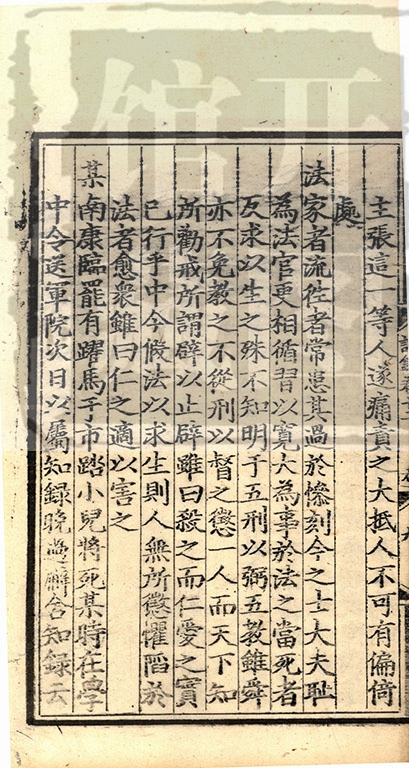 主張這一等人遂痛責之大抵人不可有偏倚
處
法家者流徃者常患其過於慘刻今之士大夫恥
為法官更相循習以寬大為事於法之當死者
反求以生之殊不知明于五刑以弼五教雖舜
亦不免教之不從刑以督之懲一人而天下知
所勸戒所謂辟以止辟雖曰殺之而仁愛之實
已行乎中今俊法以求生則人無所懲懼陷於
法者愈衆雖曰仁之適以害之
某南康臨罷有躍馬于市踏小兒將死某時在學
中令送軍院次日以屬知録晚過廨舍知録云